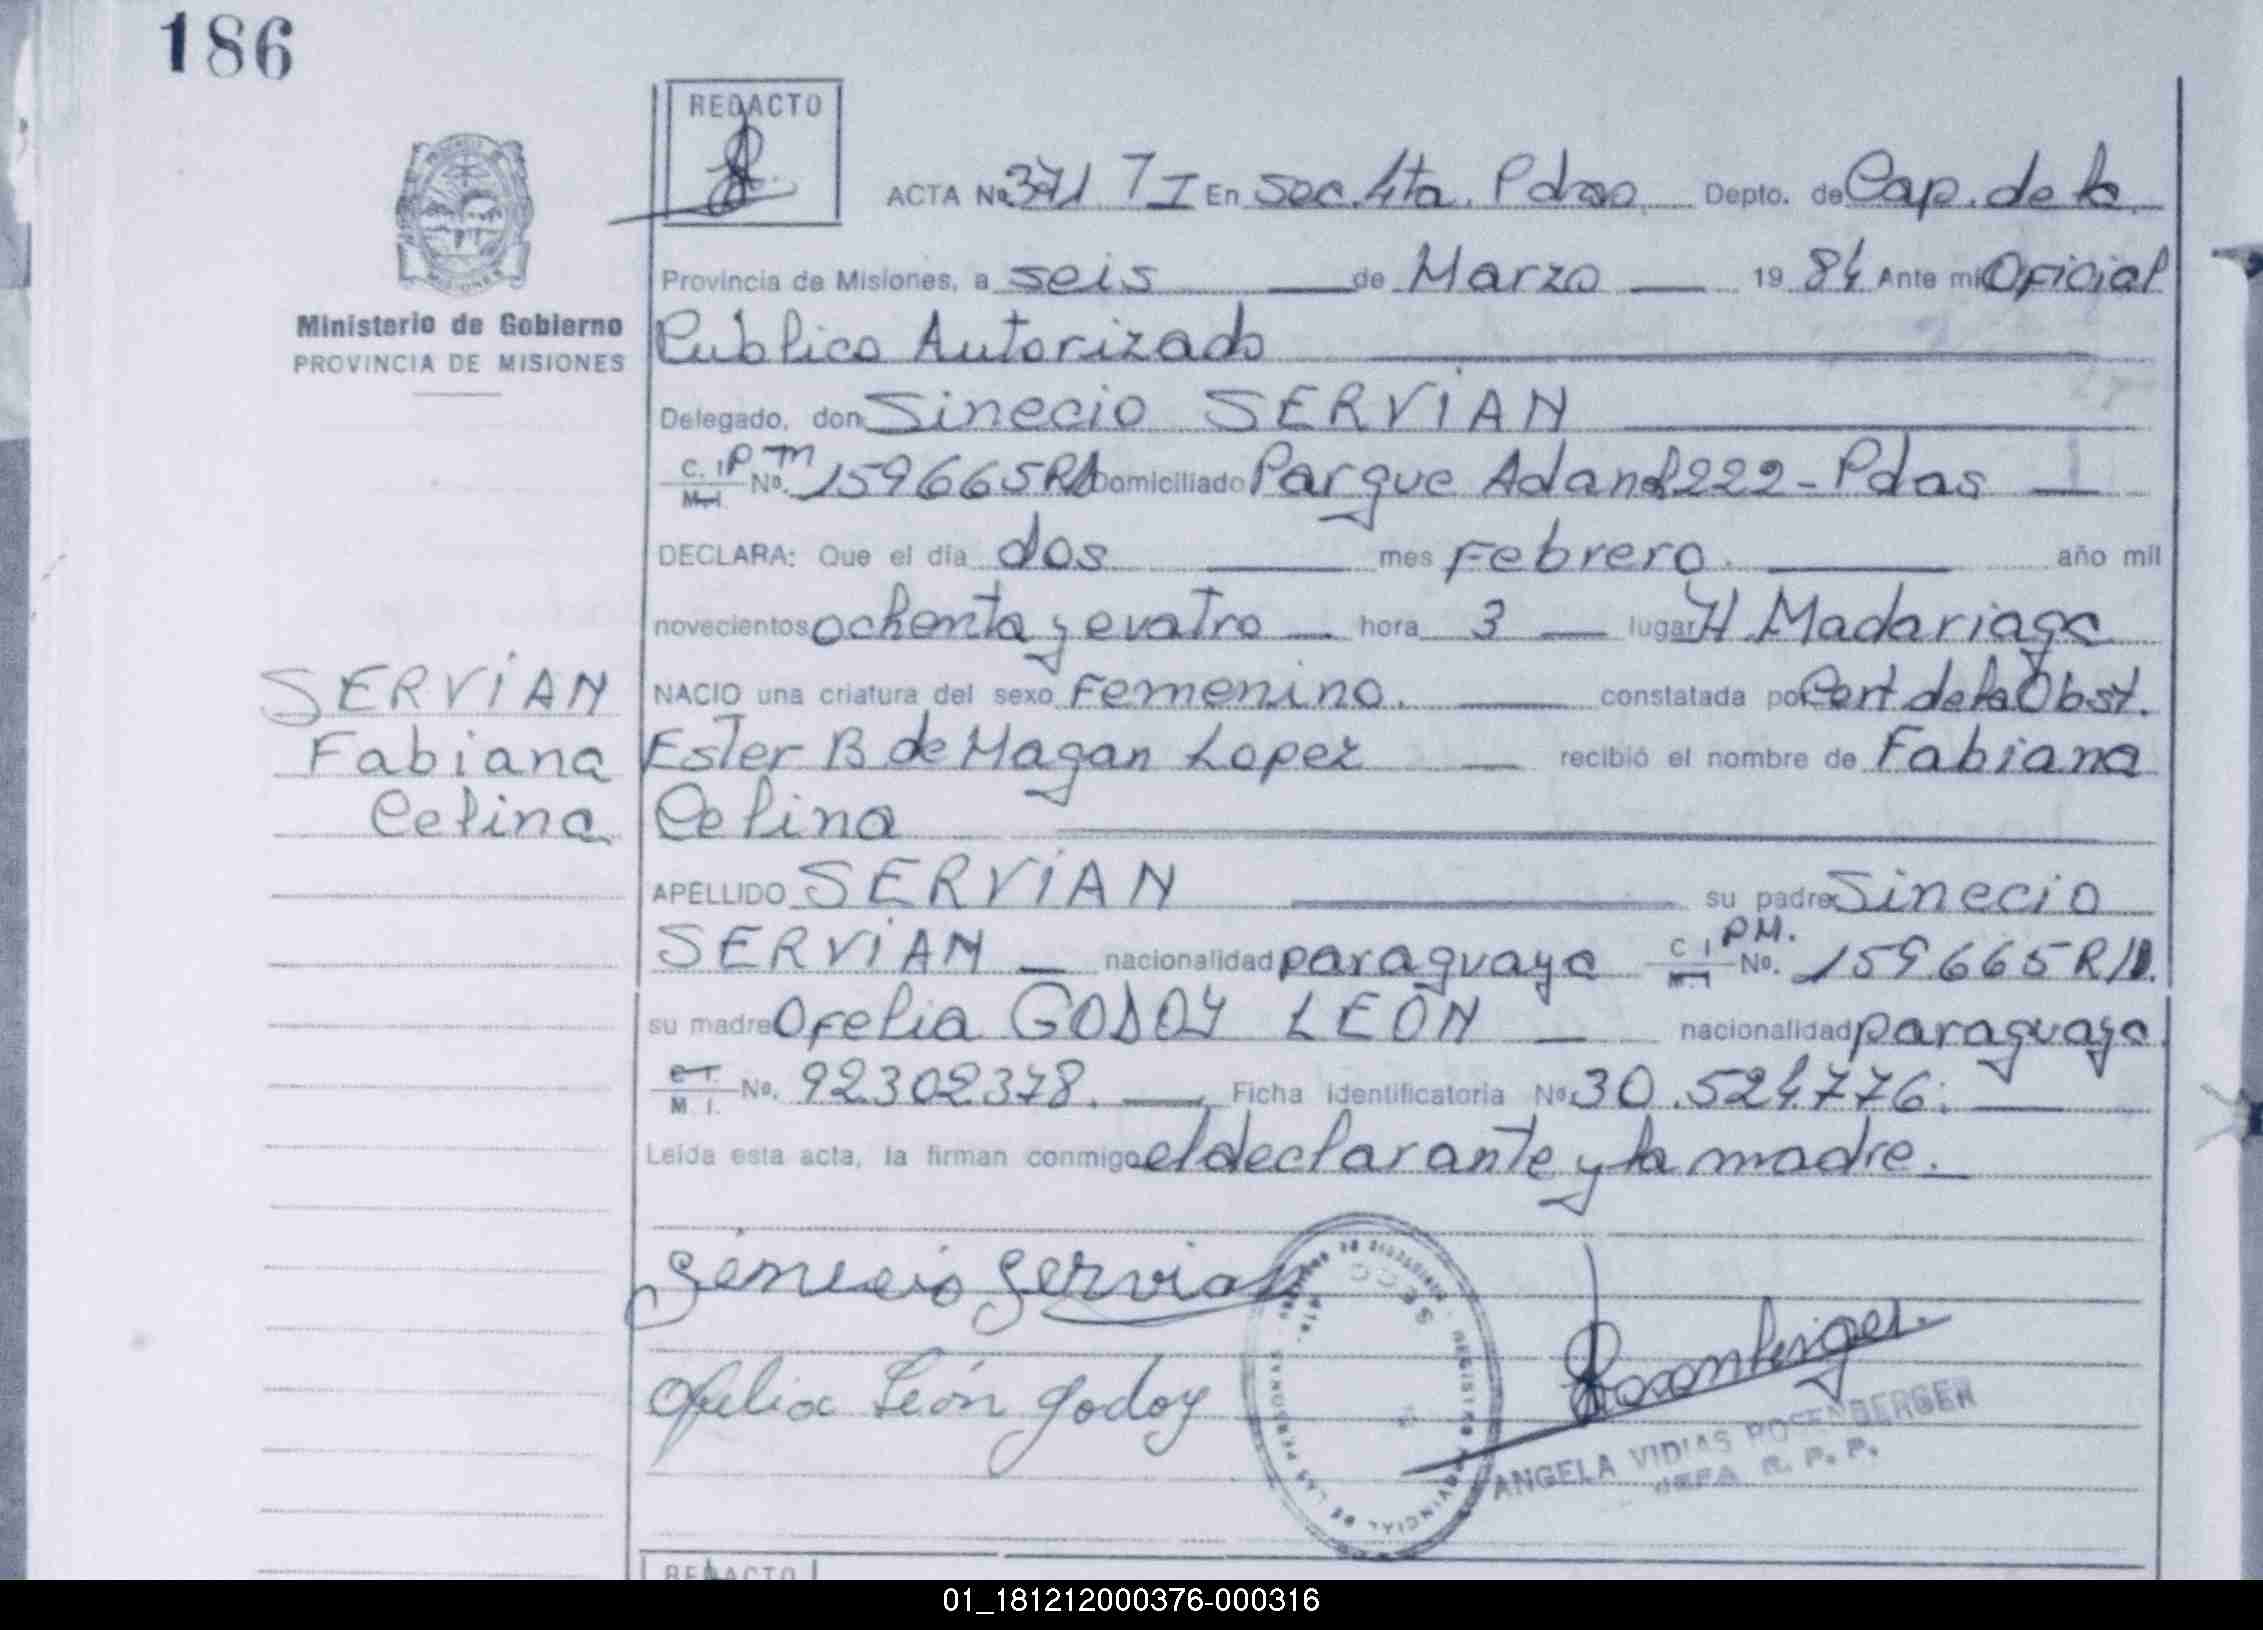 186
REDACTO
ACTA No. 371 T I En Sec. 4ta. Pdas. Depto. de Cap. de la
Provincia de Misiones, a seis de Marzo 19 84 Ante mi Oficial
Ministerio de Gobierno
PROVINCIA DE MISIONES
Publico Autorizado
Delegado, don Sinecio SERVIAN
C. I. P. M. No. 159665 RA Domiciliado Parque Adam 222 - Pdas
M. I.
DECLARA: Que el día dos mes Febrero. año mil
novecientos ochenta y cuatro hora 3 lugar H. Madariaga
SERVIAN
Fabiana
Celina
NACIO una criatura del sexo Femenino. constatada por Cert de la Obst.
Ester B de Magan Lopez recibió el nombre de Fabiana
Celina
APELLIDO SERVIAN su padre Sinecio
SERVIAN nacionalidad paraguaya C I P.M. No. 159.665 R/A.
M. I
su madre Ofelia GODOY LEÓN nacionalidad paraguaya
C. I.
M. I. No. 92302378. Ficha identificatoria No. 30.524.776.
Leída esta acta, la firman conmigo el declarante y la madre.
Sinecio Servian
Ofelia León Godoy
Rosenberger
SECC. 4ta.
REGISTRO PROVINCIAL DE LAS PERSONAS
ANGELA VIDIAS ROSENBERGER
JEFA R. P. P.
REDACTO
01_181212000376-000316